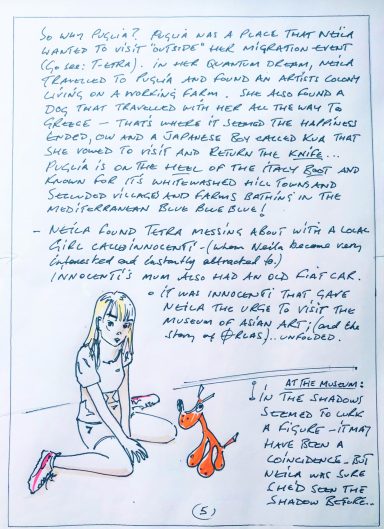 SO WHY PUGLIA? PUGLIA WAS A PLACE THAT NEILA
WANTED TO VISIT "OUTSIDE" HER MIGRATION EVENT
(Go see: T-ETRA). IN HER QUANTUM DREAM, NEILA
TRAVELLED TO PUGLIA AND FOUND AN ARTISTS COLONY
LIVING ON A WORKING FARM. SHE ALSO FOUND A
DOG THAT TRAVELLED WITH HER ALL THE WAY TO
GREECE - THAT'S WHERE IT SEEMED THE HAPPINESS
ENDED, OW AND A JAPANESE BOY CALLED KUA THAT
SHE VOWED TO VISIT AND RETURN THE KNIFE...
PUGLIA IS ON THE HEEL OF THE ITALY BOOT AND
KNOWN FOR ITS WHITEWASHED HILL TOWNS AND
SECLUDED VILLAGES AND FARMS BATHING IN THE
MEDITERRANEAN BLUE BLUE BLUE!
- NEILA FOUND TETRA MESSING ABOUT WITH A LOCAL
GIRL CALLED INNOCENTI - (whom Neila became very
interested and instantly attracted to.)
INNOCENTI'S MUM ALSO HAD AN OLD FIAT CAR.
• IT WAS INNOCENTI THAT GAVE
NEILA THE URGE TO VISIT THE
MUSEUM OF ASIAN ART; (and the
story of ØRLAS).. UNFOLDED.
AT THE MUSEUM:
IN THE SHADOWS
SEEMED TO LURK
A FIGURE - IT MAY
HAVE BEEN A
COINCIDENCE - BUT
NEILA WAS SURE
SHE'D SEEN THE
SHADOW BEFORE..
(5)